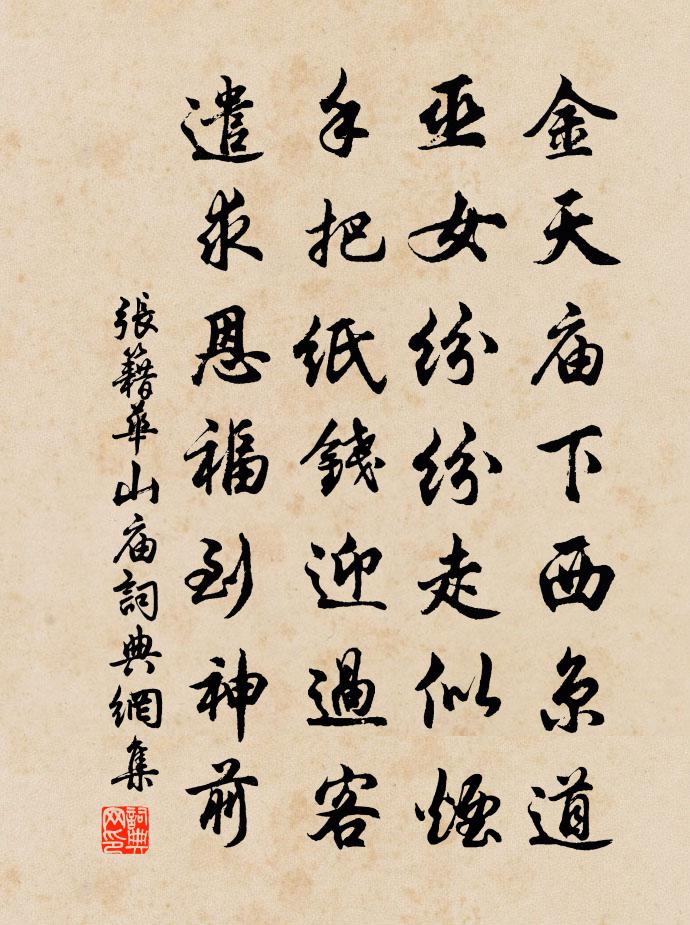 金天庙下西京道
巫女纷纷走似煙
手把纸錢迎過客
遣求恩福到神前
張籍華山庙詞典網集
詞典网印